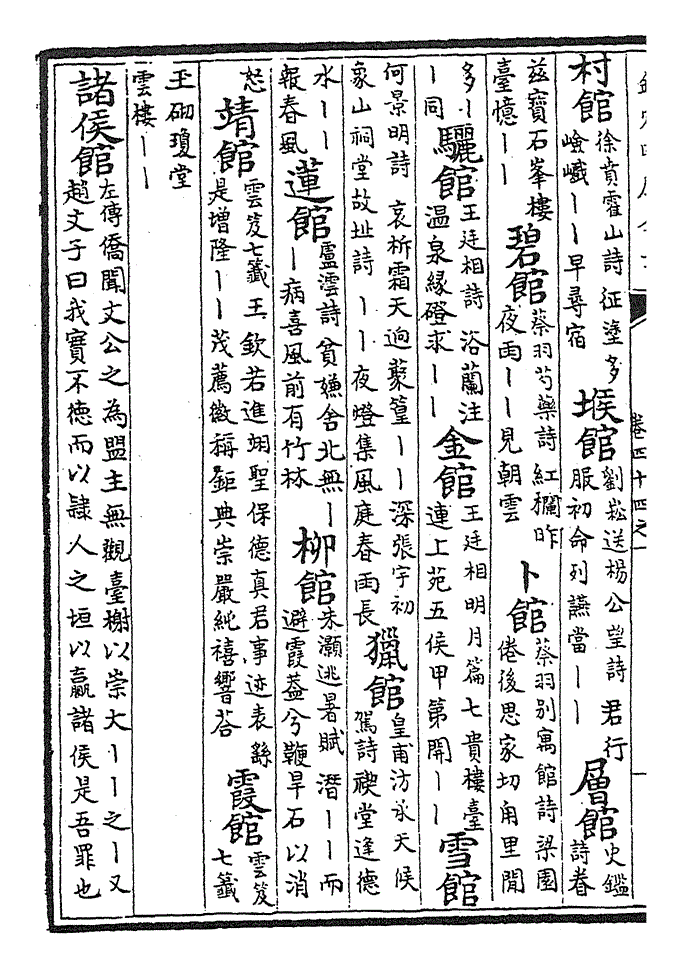 卷四十四之一
村館
徐賁霍山詩征塗多
嶮巇丨丨早尋宿
堠館
劉崧送楊公望詩君行
服初命列讌當丨丨
層館
史鑑
詩眷
茲寶石峯樓
臺憶丨丨
碧館
蔡羽芍藥詩紅欄昨
夜雨丨丨見朝雲
卜館
蔡羽別寓館詩梁園
倦後思家切甪里閒
多丨
丨同
驪館
王廷相詩浴蘭注
温泉緣磴求丨丨
金館
王廷相明月篇七貴樓臺
連上苑五侯甲第開丨丨
雪館
何景明詩哀柝霜天逈藂篁丨丨深張宇初
象山祠堂故址詩丨丨夜燈集風庭春雨長
獵館
皇甫汸永天候
駕詩禊堂逢德
水丨丨
報春風
蓮館
盧澐詩貧嫌舍北無丨
丨病喜風前有竹林
柳館
朱灝逃暑賦潛丨丨而
避霞蓋兮鞭旱石以消
恕
靖館
雲笈七籤王欽若進翊聖保德真君事迹表繇
是增隆丨丨茂薦徽稱鉅典崇嚴純禧響荅
霞館
雲笈
七籤
玉砌瓊堂
雲樓丨丨
諸侯館
左傳僑聞文公之為盟主無觀臺榭以崇大丨丨之丨又
趙文子曰我實不德而以隷人之垣以贏諸侯是吾罪也